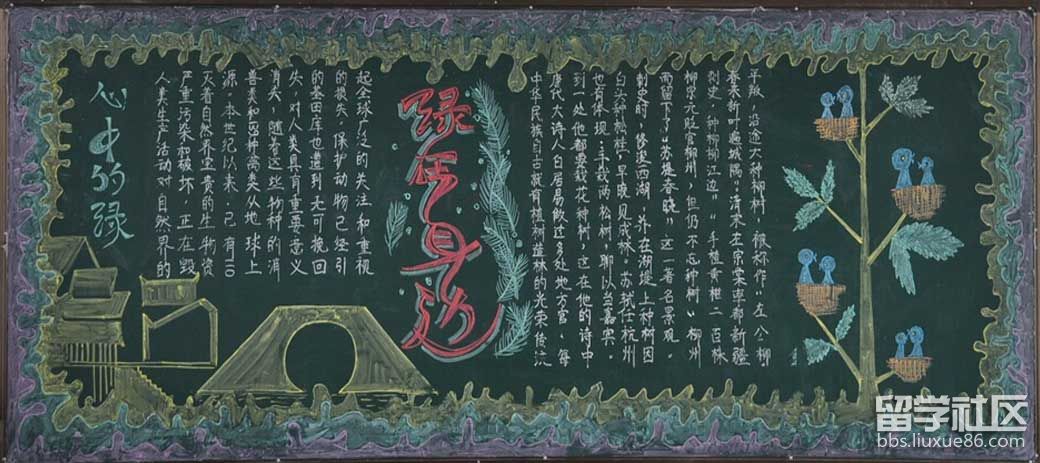 心中的绿
人类生产活动对自然界的
严重污染和破坏,正在毁
灭着自然界宝贵的生物资
源,本世纪以来,已有110
兽类和139种禽类从地球上
消失,随着这些物种的消
失,对人类具有重要意义
的基因库也遭到无可挽回
的损失,保护动物已经引
起全球广泛的关注和重视
绿在身边
中华民族自古就有植树造林的光荣传统
唐代大诗人白居易做过多处地方官,每
到一处他都要栽花种树,这在他的诗中
也有体现:手栽两松树,聊以当嘉宾。
白头种松桂,早晚见成林。苏轼任杭州
刺史时,修浚西湖,并在湖堤上种树因
而留下了“苏堤春晓”这一著名景观。
柳宗元贬官柳州,但仍不忘种树“柳州
刺史,种柳柳江边”“手植黄柑二百株
春来新叶遍城隅”清末左宗棠率部新疆
平叛,沿途大种柳树,被称作“左公柳
留学社区
bbs.liuxue86.com